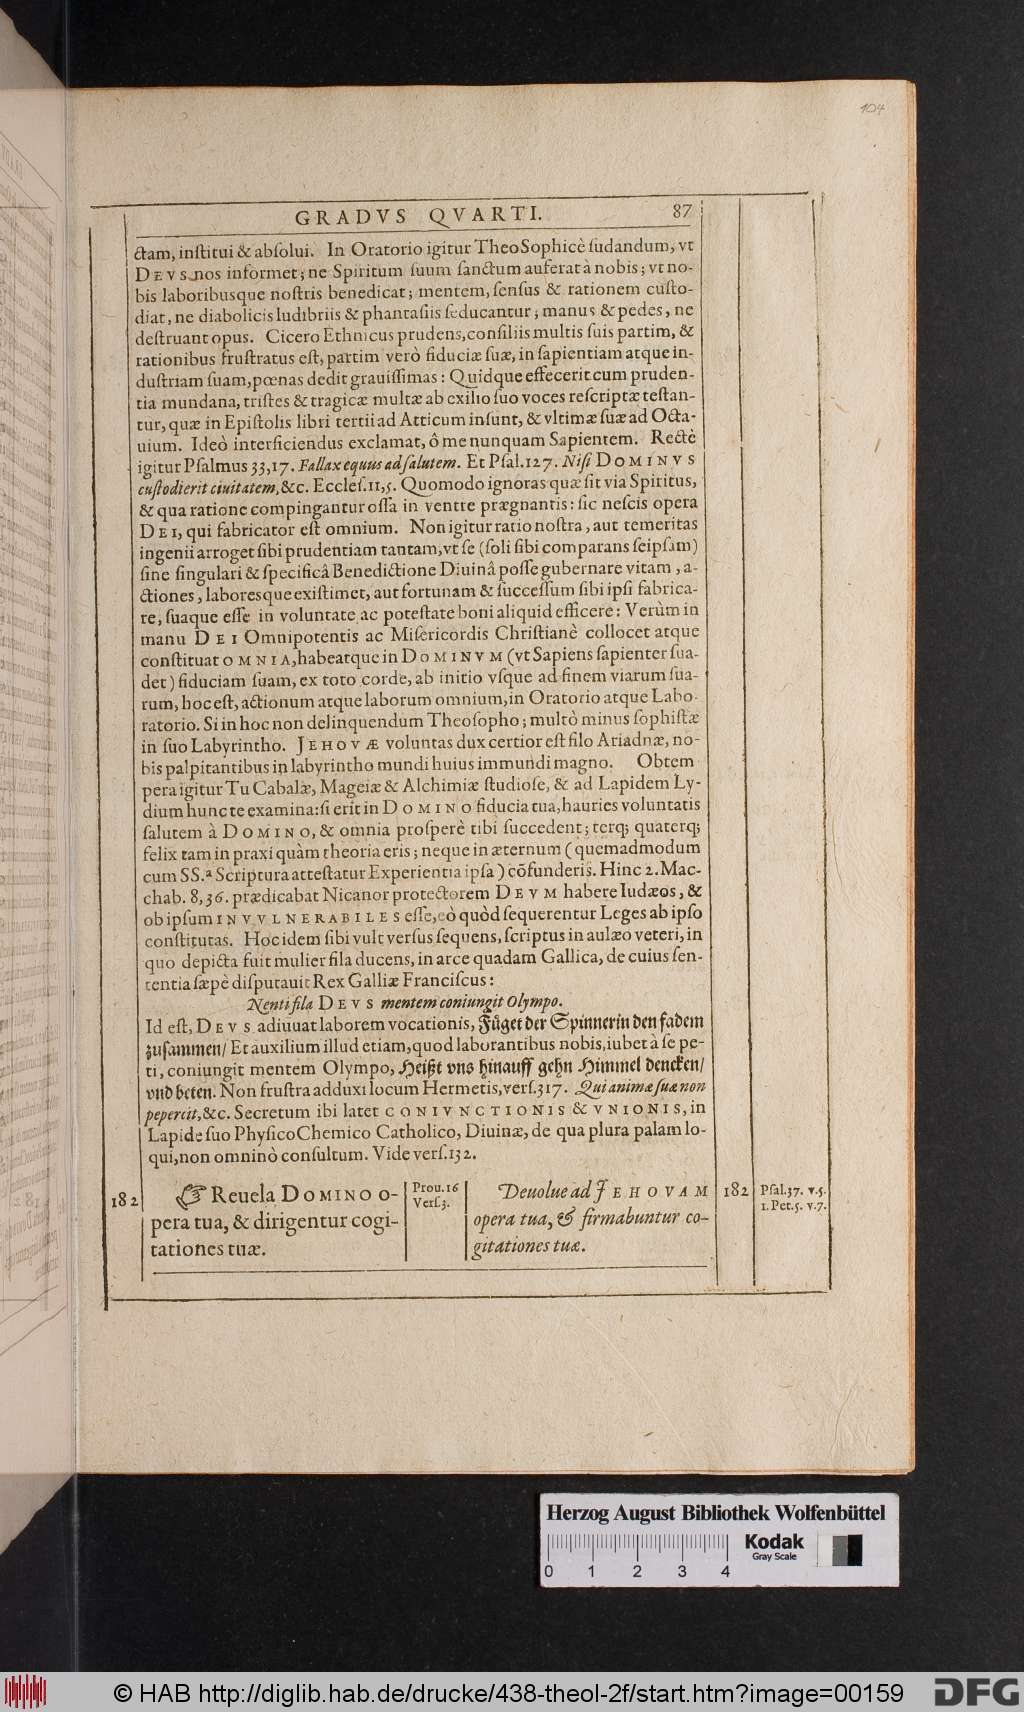 104
GRADVS QVARTI. 87
ctam, inſtitui & abſolui. In Oratorio igitur TheoSophicè ſudandum, vt
DEVS nos informet; ne Spiritum ſuum ſanctum auferat à nobis; vt no-
bis laboribusque noſtris benedicat; mentem, ſenſus & rationem cuſto-
diat, ne diabolicis ludibriis & phantaſiis ſeducantur; manus & pedes, ne
deſtruant opus. Cicero Ethnicus prudens, conſiliis multis ſuis partim, &
rationibus fruſtratus eſt, partim verò fiduciæ ſuæ, in ſapientiam atque in-
duſtriam ſuam, pœnas dedit grauiſſimas: Quidque effecerit cum pruden-
tia mundana, triſtes & tragicæ multæ ab exilio ſuo voces reſcriptæ teſtan-
tur, quæ in Epiſtolis libri tertii ad Atticum inſunt, & vltimæ ſuæ ad Octa-
uium. Ideò interficiendus exclamat, ô me nunquam Sapientem. Rectè
igitur Pſalmus 33,17. Fallax equus ad ſalutem. Et Pſal.127. Niſi DOMINVS
cuſtodierit ciuitatem, &c. Eccleſ.11,5. Quomodo ignoras quæ ſit via Spiritus,
& qua ratione compingantur oſſa in ventre prægnantis: ſic neſcis opera
DEI, qui fabricator eſt omnium. Non igitur ratio noſtra, aut temeritas
ingenii arroget ſibi prudentiam tantam, vt ſe (ſoli ſibi comparans ſeipſam)
ſine ſingulari & ſpecificâ Benedictione Diuinâ poſſe gubernare vitam, a-
ctiones, laboresque exiſtimet, aut fortunam & ſucceſſum ſibi ipſi fabrica-
re, ſuaque eſſe in voluntate ac poteſtate boni aliquid efficere: Verùm in
manu DEI Omnipotentis ac Miſericordis Chriſtianè collocet atque
conſtituat OMNIA, habeatque in DOMINVM (vt Sapiens ſapienter ſua-
det) fiduciam ſuam, ex toto corde, ab initio vſque ad finem viarum ſua-
rum, hoc eſt, actionum atque laborum omnium, in Oratorio atque Labo-
ratorio. Si in hoc non delinquendum Theoſopho; multò minus ſophiſtæ
in ſuo Labyrintho. JEHOVÆ voluntas dux certior eſt filo Ariadnæ, no-
bis palpitantibus in labyrintho mundi huius immundi magno. Obtem
pera igitur Tu Cabalæ, Mageiæ & Alchimiæ ſtudioſe, & ad Lapidem Ly-
dium hunc te examina: ſi erit in DOMINO fiducia tua, hauries voluntatis
ſalutem à DOMINO, & omnia proſperè tibi ſuccedent; terq; quaterq;
felix tam in praxi quàm theoria eris; neque in æternum (quemadmodum
cum SS.ª Scriptura atteſtatur Experientia ipſa) cõfunderis. Hinc 2. Mac-
chab. 8,36. prædicabat Nicanor protectorem DEVM habere Iudæos, &
ob ipſum INVVLNERABILES eſſe, eò quòd ſequerentur Leges ab ipſo
conſtitutas. Hoc idem ſibi vult verſus ſequens, ſcriptus in aulæo veteri, in
quo depicta fuit mulier fila ducens, in arce quadam Gallica, de cuius ſen-
tentia ſæpè diſputauit Rex Galliæ Franciſcus:
Nenti fila DEVS mentem coniungit Olympo.
Id eſt, DEVS adiuuat laborem vocationis, Füget der Spinnerin den fadem
zuſammen/ Et auxilium illud etiam, quod laborantibus nobis, iubet à ſe pe-
ti, coniungit mentem Olympo, Heißt vns hinauff gehn Himmel dencken/
vnd beten. Non fruſtra adduxi locum Hermetis, verſ.317. Qui animæ ſuæ non
pepercit, &c. Secretum ibi latet CONIVNCTIONIS & VNIONIS, in
Lapide ſuo PhyſicoChemico Catholico, Diuinæ, de qua plura palam lo-
qui, non omninò conſultum. Vide verſ.132.
182 ☞ Reuela DOMINO o-
pera tua, & dirigentur cogi-
tationes tuæ.
Prou.16
Verſ.3.
Deuolue ad JEHOVAM
opera tua, & firmabuntur co-
gitationes tuæ.
182 Pſal.37. v.5.
1. Pet.5. v.7.
Herzog August Bibliothek Wolfenbüttel
Kodak
Gray Scale
0 1 2 3 4
© HAB http://diglib.hab.de/drucke/438-theol-2f/start.htm?image=00159
DFG